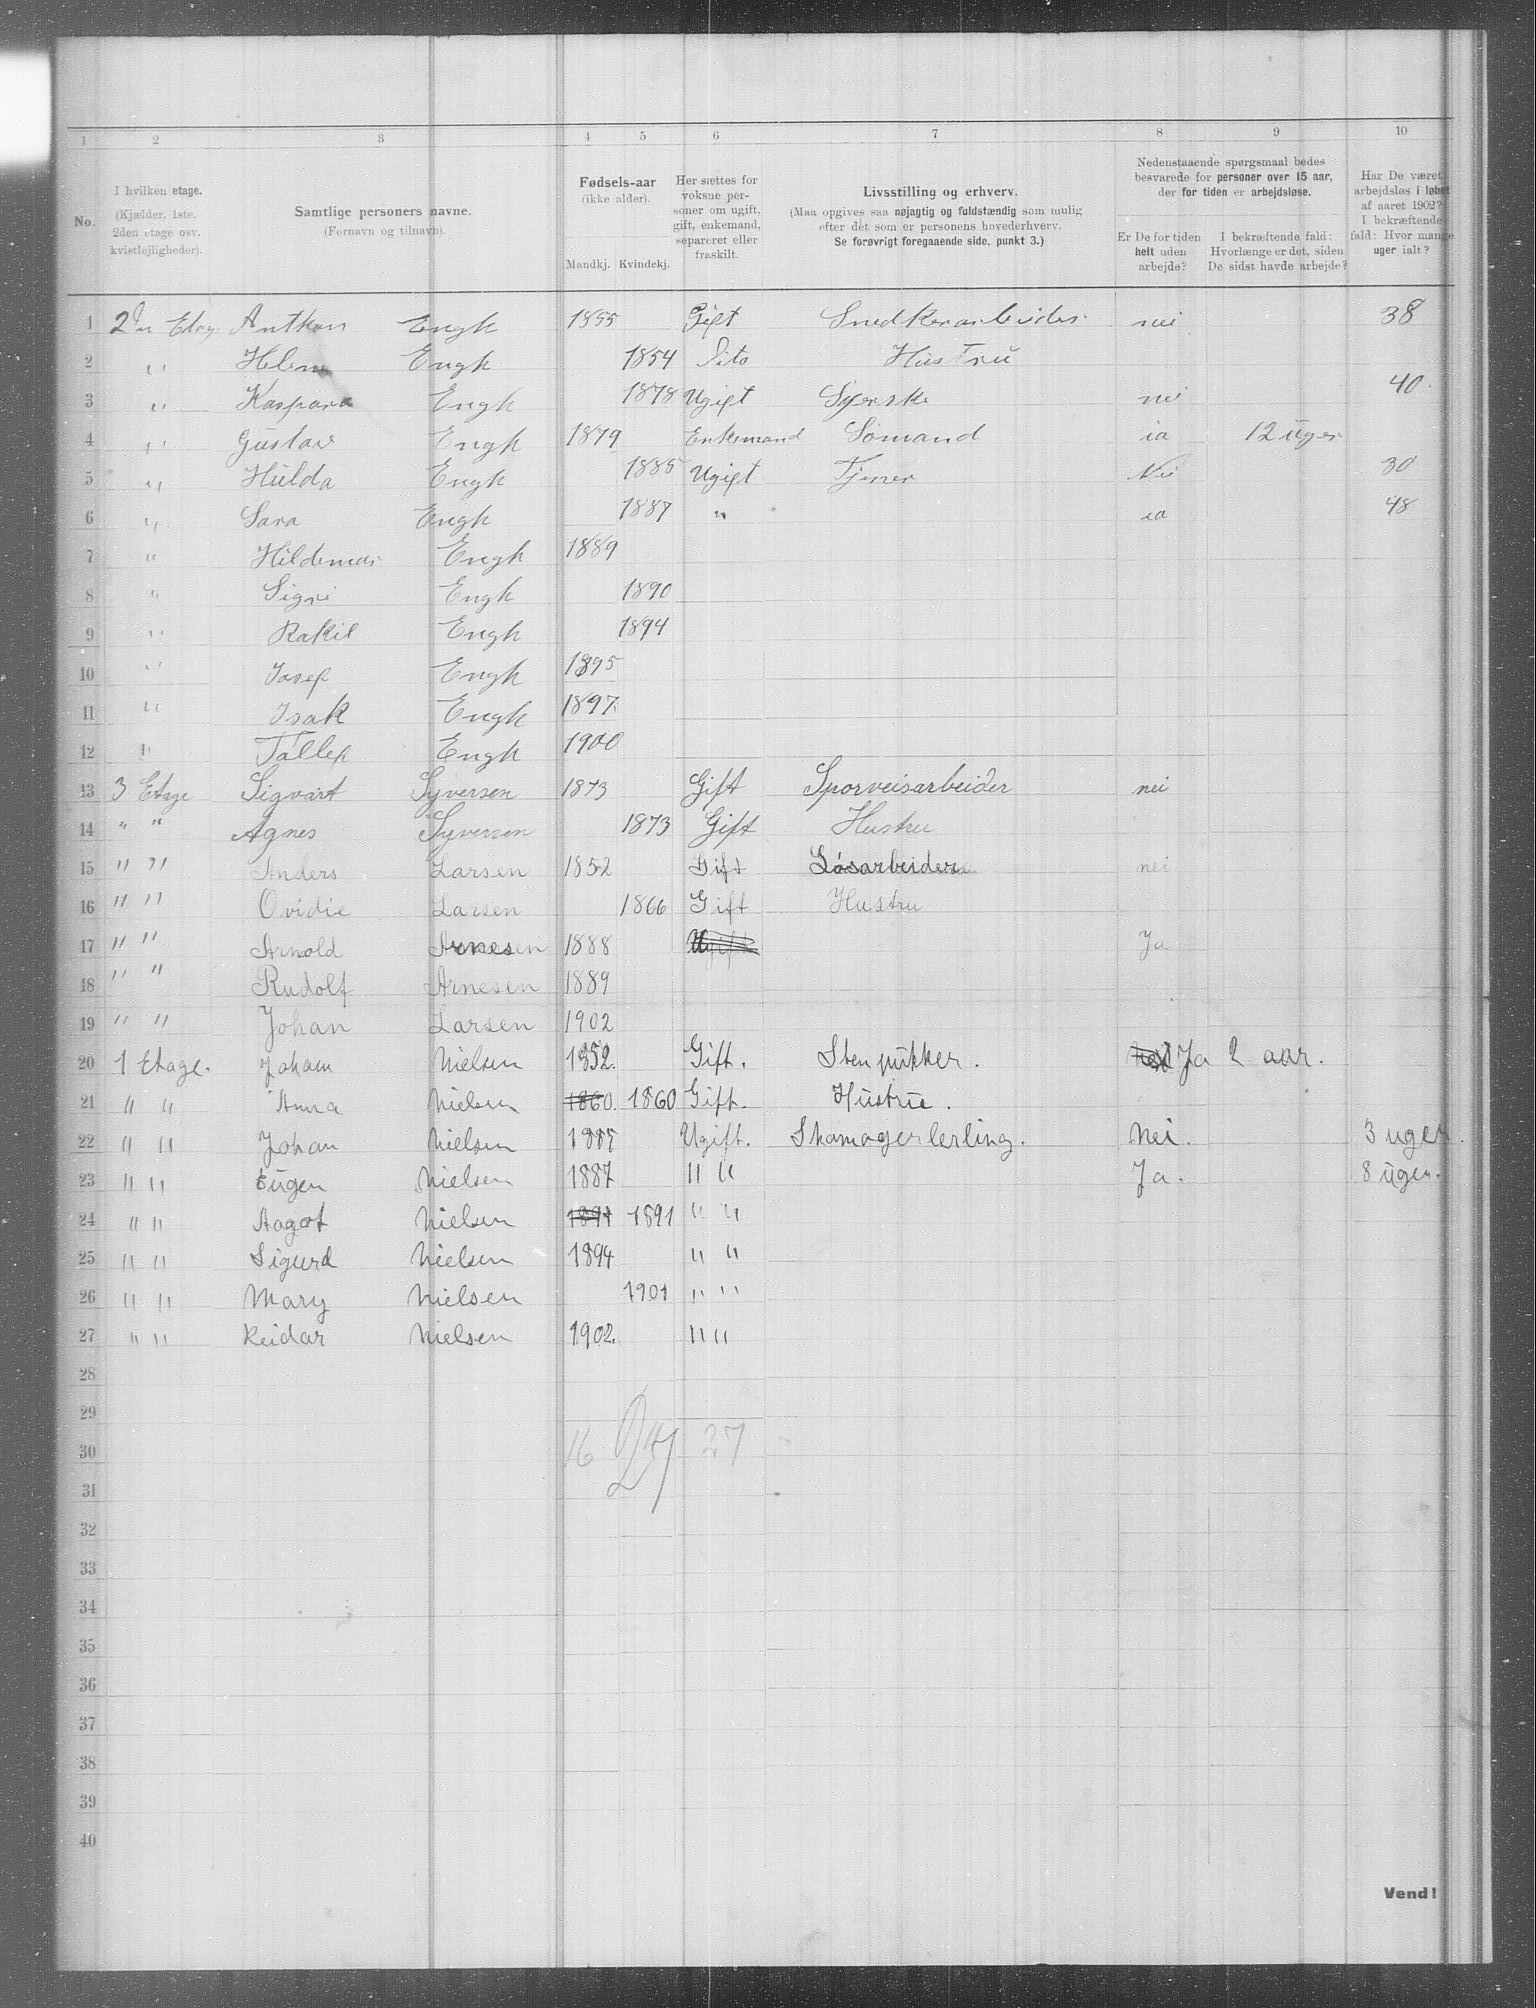 1 2 3 4 5 6 7 8 9 10
No.
I hvilken etage.
(Kjælder, 1ste.
2den etage osv.
kvistlejligheder).
Samtlige personers navne.
(Fornavn og tilnavn).
Fødsels-aar
(ikke alder).
Mandkj. Kvindekj.
Her sættes for
voksne per-
soner om ugift,
gift, enkemand,
separeret eller
fraskilt.
Livsstilling og erhverv.
(Man opgives saa nøjagtig og fuldstændig som mulig
efter det som er personens hovederhverv.
Se forøvrigt foregaaende side, punkt 3.)
Nedenstaaende spørgsmaal bedes
besvarede for personer over 15 aar,
der for tiden er arbejdsløse.
Er De for tiden
helt uden
arbejde?
I bekræftende fald:
Hvorlænge er det, siden
De sidst havde arbejde?
Har De været
arbejdsløs i løbet
af aaret 1902?
I bekræftende
fald: Hvor mange
uger ialt?
1 2den Etag Anthon Engh 1855 Gift Snedkerarbeider nei 38
2 " Helene Engh 1854 Dito Hustru
3 " Kaspara Engh 1878 Ugift Syerske nei 40
4 " Gustav Engh 1879 Enkemand Sømand ia 12 uger
5 " Hulda Engh 1885 Ugift Tjener Nei 30
6 " Sara Engh 1887 " ia 48
7 " Hildemar Engh 1889
8 " Signi Engh 1890
9 " Rakil Engh 1894
10 " Josef Engh 1895
11 " Isak Engh 1897
12 " Tallef Engh 1900
13 3 Etage Sigvart Syversen 1873 Gift Sporveisarbeider nei
14 " " Agnes Syversen 1873 Gift Hustru
15 " " Anders Larsen 1852 Gift Løsarbeider nei
16 " " Ovidie Larsen 1866 Gift Hustru
17 " " Arnold Arnesen 1888 Ugift Ja
18 " " Rudolf Arnesen 1889
19 " " Johan Larsen 1902
20 1 Etage. Johan Nielsen 1852. Gift. Stenpukker. nei Ja 2 aar.
21 " " Anna Nielsen 1860. 1860 Gift. Hustrue.
22 " " Johan Nielsen 1885 Ugift. Skomagerlerling. Nei. 3 uger.
23 " " Eugen Nielsen 1887 " " Ja. 8 uger.
24 " " Aagot Nielsen 1891 1891 " "
25 " " Sigurd Nielsen 1894 " "
26 " " Mary Nielsen 1901 " "
27 " " Reidar Nielsen 1902. " "
28
29
30 16 27
31
32
33
34
35
36
37
38
39
40
Vend!